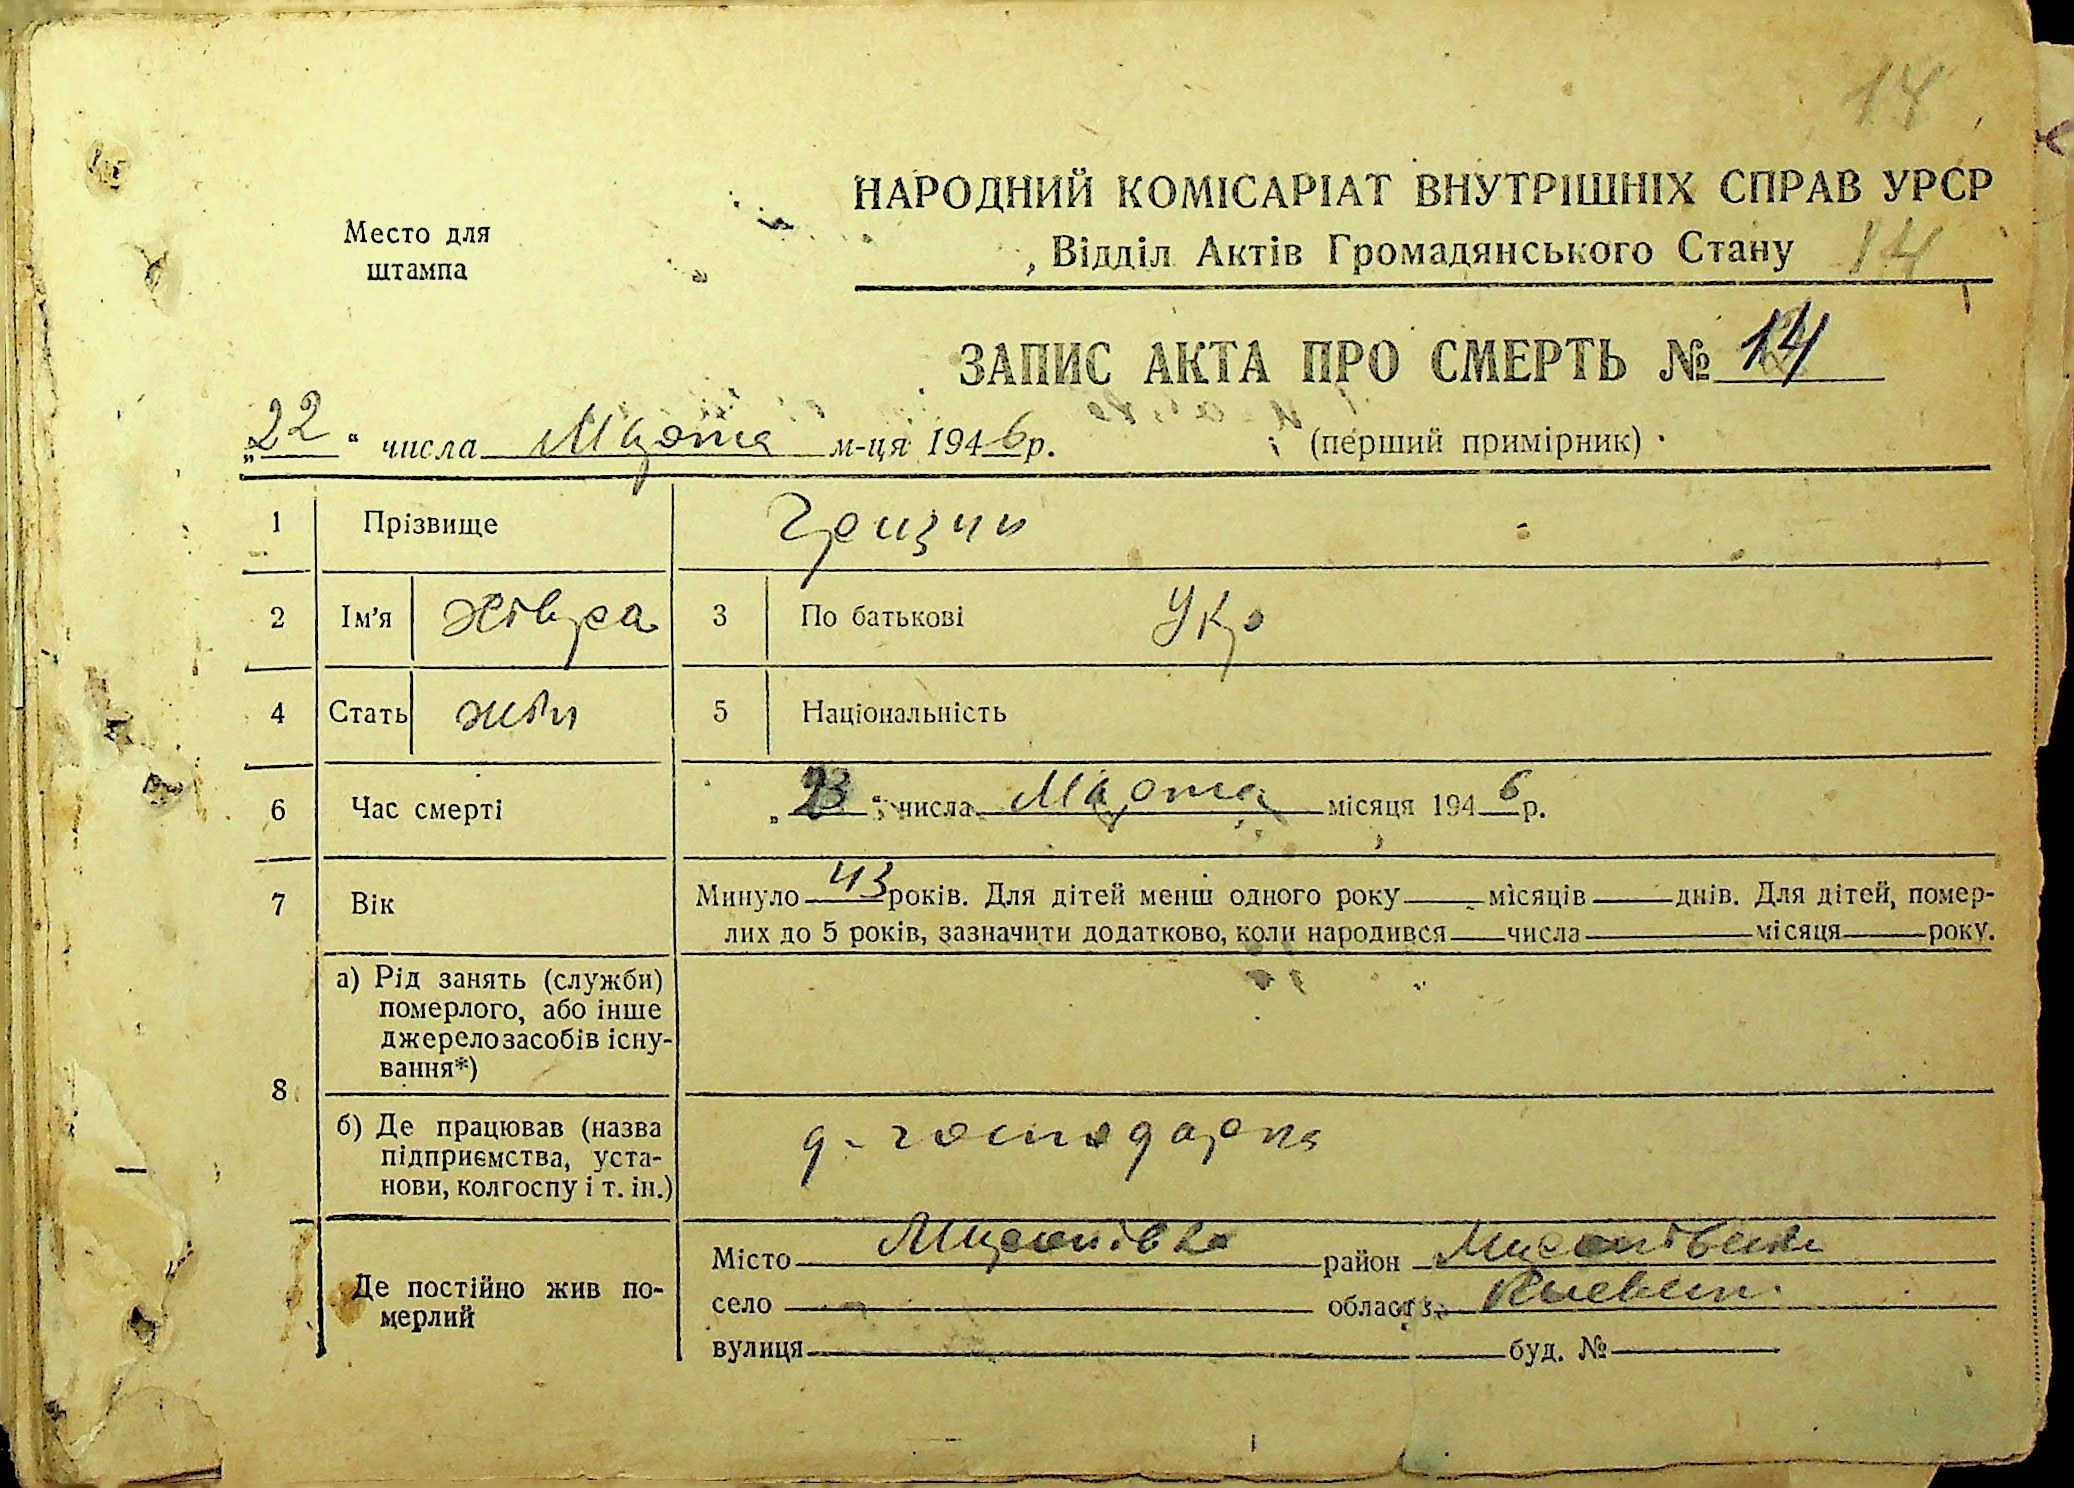 14
НАРОДНИЙ КОМІСАРІАТ ВНУТРІШНІХ СПРАВ УРСР
Место для
штампа
Відділ Актів Громадянського Стану 14
ЗАПИС АКТА ПРО СМЕРТЬ № 14
„22“ числа Марта м-ця 1946р.
(перший примірник)
1 Прізвище
2 Ім'я Хівря 3 По батькові Укр
4 Стать жін 5 Національність
6 Час смерті „23“ числа Марта місяця 1946р.
7 Вік Минуло 43 років. Для дітей менш одного року місяців днів. Для дітей, помер-
лих до 5 років, зазначити додатково, коли народився числа місяця року.
8 а) Рід занять (служби)
померлого, або інше
джерело засобів існу-
вання*)
б) Де працював (назва
підприємства, уста-
нови, колгоспу і т. ін.)
д-господарка
Де постійно жив по-
мерлий
Місто Миронівка район Миронівськ
село область Киевск.
вулиця буд. №